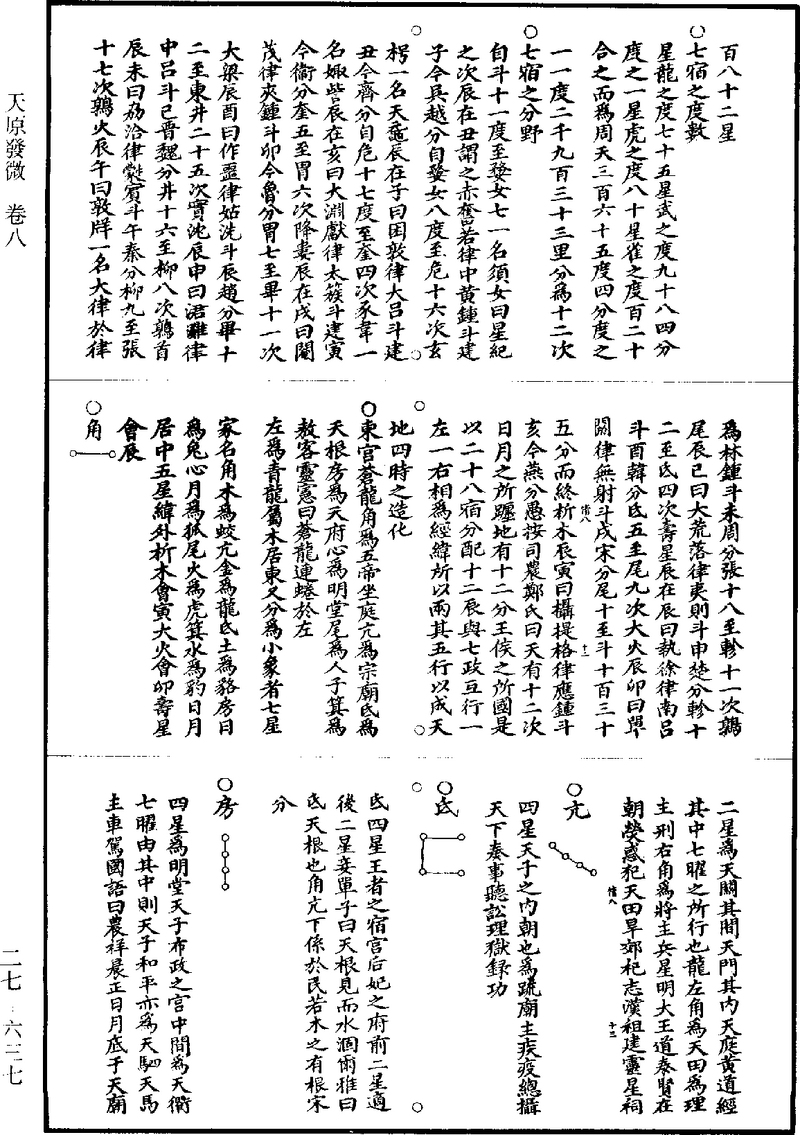 百八十二星
○七宿之度數
星龍之度七十五星武之度九十八四分
度之一星虎之度八十星雀之度百二十
合之而為周天三百六十五度四分度之
一一度二千九百三十三里分為十二次
○七宿之分野
自斗十一度至婺女七一名須女曰星紀
之次辰在丑謂之赤奮若律中黃鍾斗建
子今吳越分自婺女八度至危十六次玄
枵一名天黿辰在子曰困敦律大呂斗建
丑今齊分自危十七度至奎四次豕韋一
名娵訾辰在亥曰大淵獻律太簇斗建寅
今衞分奎五至胃六次降婁辰在戌曰閹
茂律夾鍾斗卯今魯分胃七至畢十一次
大梁辰酉曰作噩律姑洗斗辰趙分畢十
二至東井十五次實沈辰申曰涒灘律
中呂斗巳晉魏分井十六至柳八次鶉首
辰未曰協洽律蕤賓斗午秦分柳九至張
十七次鶉火辰午曰敦牂一名大律於律
為林鍾斗未周分張十八至軫十一次鶉
尾辰巳曰大荒落律夷則斗申楚分軫十
二至氐四次壽星辰在辰曰執徐律南呂
斗酉韓分氐五至尾九次大火辰卯曰單
閼律無射斗戌宋分尾十至斗十百三十
五分而終析木辰寅曰攝提格律應鍾斗
亥今燕分愚按司農鄭氏曰天有十二次
日月之所躔地有十二分王侯之所國是
以二十八宿分配十二辰與七政互行一
左一右相為經緯所以兩其五行以成天
地四時之造化
○東宫蒼龍角為五帝坐庭亢為宗廟氐為
天根房為天府心為明堂尾為人子箕為
敖客靈憲曰蒼龍連蜷於左
左為青龍屬木居東又分為小象者七星
家名角木為蛟亢金為龍氐土為貉房日
為兔心月為狐尾火為虎箕水為豹日月
居中五星緯外析木會寅大火會卯壽星
會辰
○角
二星為天關其間天門其内天庭黃道經
其中七曜之所行也龍左角為天田為理
主刑右角為將主兵星明大王道泰賢在
朝熒惑犯天田旱郊祀志漢祖建靈星祠
○亢
四星天子之内朝也為疏廟主疾疫總攝
天下奏事聽訟理獄録功
○氐
氐四星王者之宿宫后妃之府前二星適
後二星妾單子曰天根見而水涸爾雅曰
氐天根也角亢下係於民若木之有根宋
分
○房
四星為明堂天子布政之宫中間為天衢
七曜由其中則天子和平亦為天駟天馬
主車駕國語曰農祥晨正日月底于天廟
天原發微 卷八
二七·六三七